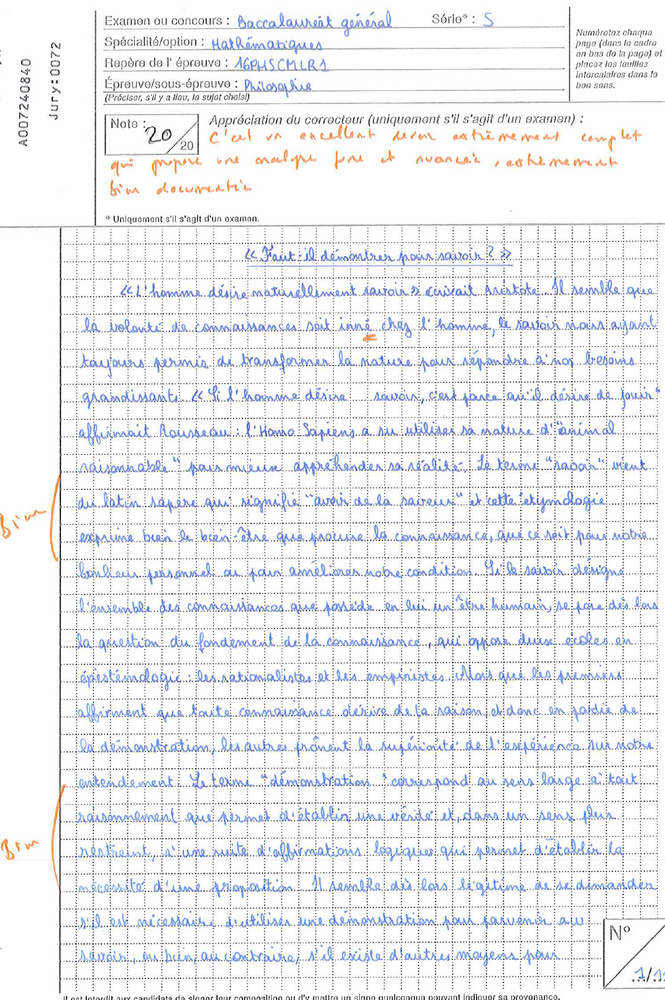 A007240840
Jury:0072
Examen ou concours : Baccalauréat général Série* : S
Spécialité/option : Mathématiques
Repère de l'épreuve : 16PHSCMLR1
Épreuve/sous-épreuve : Philosophie
(Préciser, s'il y a lieu, le sujet choisi)
Numérotez chaque
page (dans le cadre
en bas de la page) et
placez les feuilles
intercalaires dans le
bon sens.
Note :
20
/20
Appréciation du correcteur (uniquement s'il s'agit d'un examen) :
C'est un excellent devoir extrêmement complet
qui propose une analyse fine et nuancée, extrêmement
bien documentée
* Uniquement s'il s'agit d'un examen.
« Faut-il démontrer pour savoir ? »
« L'homme désire naturellement savoir » écrivait Aristote. Il semble que
la volonté de connaissances soit inné chez l'homme, le savoir nous ayant
toujours permis de transformer la nature pour répondre à nos besoins
grandissants. « Si l'homme désire savoir, c'est parce qu'il désire de jouir"
affirmait Rousseau : l'Homo Sapiens a su utiliser sa nature d'"animal
raisonnable" pour mieux appréhender sa réalité. Le terme "savoir" vient
du latin sapere qui signifie "avoir de la saveur" et cette etymologie
exprime bien le bien-être que procure la connaissance, que ce soit pour notre
bonheur personnel ou pour améliorer notre condition. Si le savoir désigne
l'ensemble des connaissances que possède en lui un être humain, se pose dès lors
la question du fondement de la connaissance, qui oppose deux écoles en
épistémologie : les rationalistes et les empiristes. Alors que les premiers
affirment que toute connaissance dérive de la raison, et donc en partie de
la démonstration, les autres prônent la supériorité de l'expérience sur notre
entendement. Le terme "démonstration" correspond au sens large à tout
raisonnement qui permet d'établir une vérité et, dans un sens plus
restreint, à une suite d'affirmations logiques qui permet d'établir la
nécessité d'une proposition. Il semble dès lors légitime de se demander
s'il est nécessaire d'utiliser une démonstration pour parvenir au
savoir, ou bien, au contraire, s'il existe d'autres moyens pour
Bien
Bien
N°
Il est interdit aux candidats de signer leur composition ou d'y mettre un signe quelconque pouvant indiquer sa provenance.